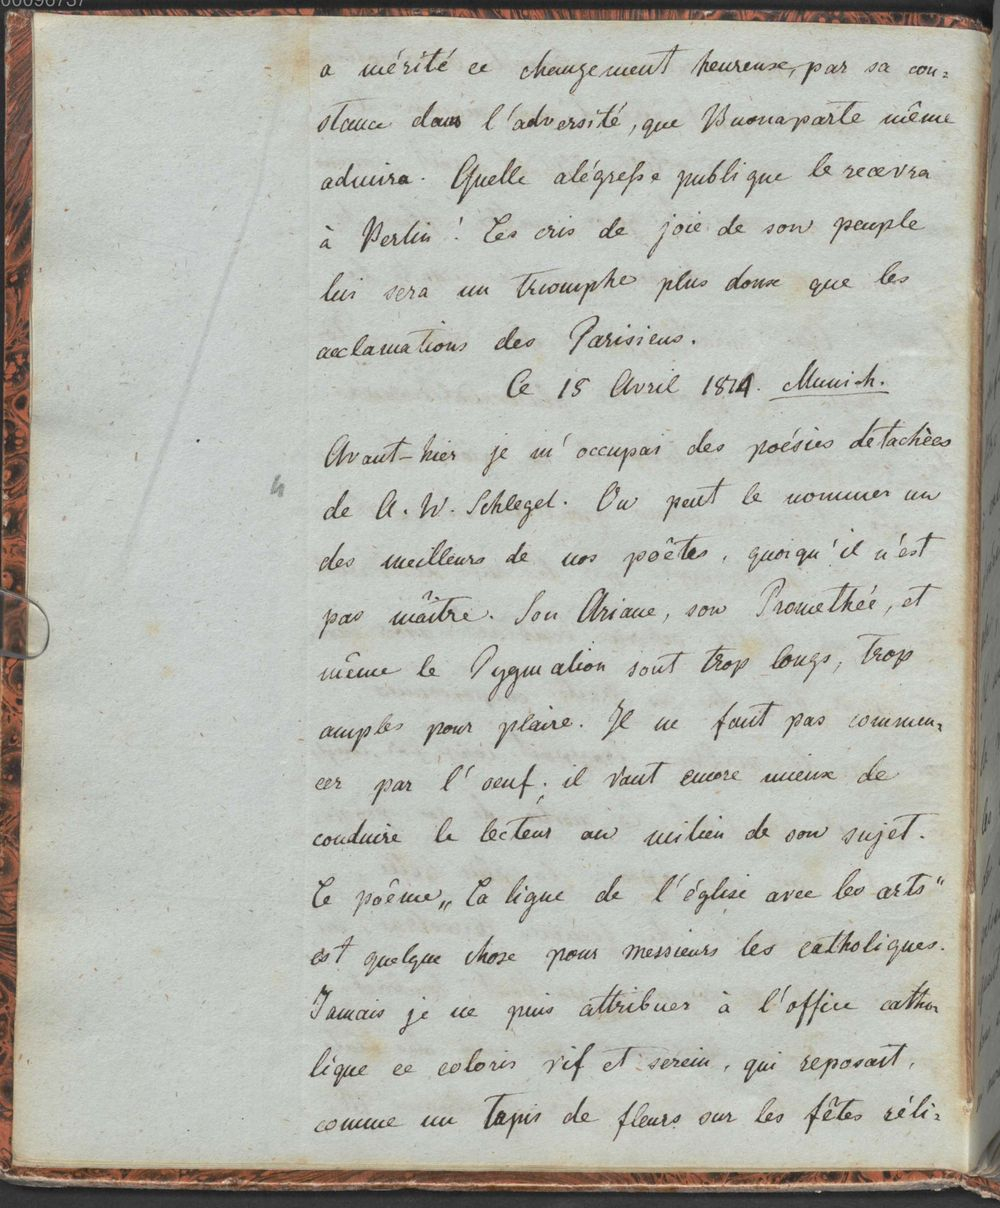 00096737
a mérité ce changement heureuse, par sa con=
stance dans l'adversité, que Buonaparte même
admira. Quelle alégresse publique le recevra
à Berlin! Les cris de joie de son peuple
lui sera un triomphe plus doux que les
acclamations des Parisiens.
Ce 18 Avril 1814. Munich.
Avant-hier je m'occupai des poésies détachées
de A. W. Schlegel. On peut le nommer un
des meilleurs de nos poêtes, quoiqu'il n'est
pas maître. Son Ariane, son Promethée, et
même le Pygmalion sont trop longs, trop
amples pour plaire. Il ne faut pas commen=
cer par l'oeuf; il vaut encore mieux de
conduire le lecteur au milieu de son sujet.
Le poême „La ligue de l'église avec les arts"
est quelque chose pour messieurs les catholiques.
Jamais je ne puis attribuer à l'office catho
lique ce coloris vif et serein, qui reposait,
comme un tapis de fleurs sur les fêtes réli=